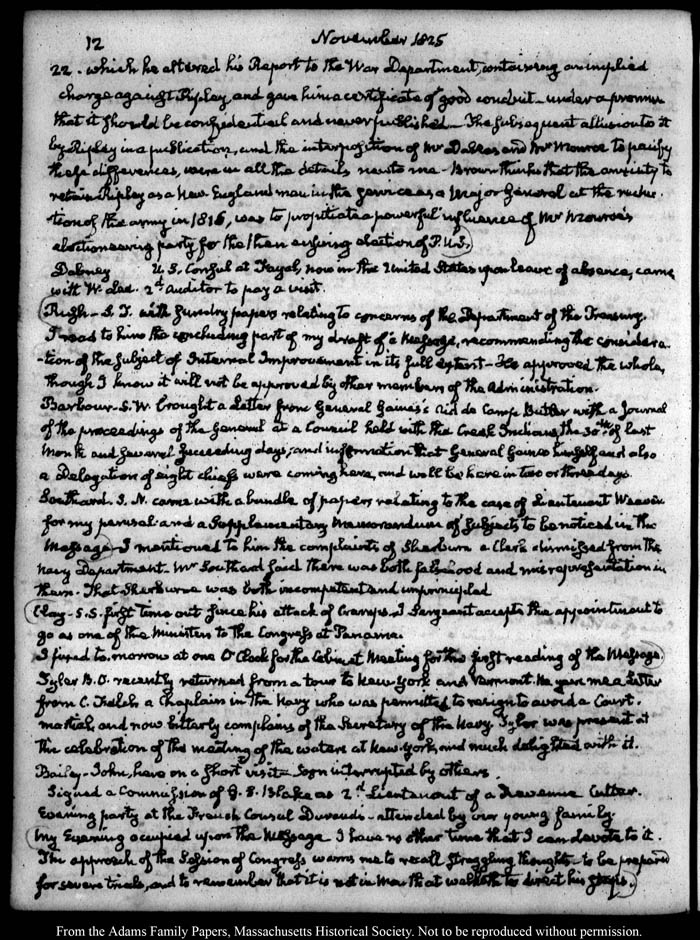 12 November 1825
22. which he altered his Report to the War Department, containing an implied
charge against Ripley, and gave him a certificate of good conduct - under a promise
that it should be confidential and never published - The subsequent allusion to it
by Ripley in a publication, and the interposition of Mr Dallas and Mr Monroe to pacify
these differences, were in all the details new to me - Brown thinks that the anxiety to
retain Ripley as a New England man in the service as a Major General at the reduc-
tion of the army in 1815, was to propitiate a powerful influence of Mr Monroe's
electioneering party for the then ensuing election of P. U.S.)
Dabney U.S. Consul at Fayal, now in the United States upon leave of absence, came
with W. Lee. 2d auditor to pay a visit.
(Rush - S.T. with sundry papers relating to concerns of the Department of the Treasury.
I read to him the concluding part of my draft of a Message, recommending the considera-
-tion of the subject of Internal Improvement in its full extent - He approved the whole,
though I know it will not be approved by other members of the Administration.
Barbour. S.W. brought a Letter from General Gaines's Aid de Camp Butler with a Journal
of the proceedings of the General at a Council held with the Creek Indians, the 30th of last
Month and several succeeding days; and information that General Gaines himself and also
a Delegation of eight chiefs were coming here, and will be here in two or three days
Southard. S.N. came with a bundle of papers relating to the case of Lieutenant Weaver
for my perusal and a Supplementary Memorandum of subjects to be noticed in the
Message) I mentioned to him the complaints of Sherburne a Clerk dismissed from the
Navy Department - Mr Southard said there was both falsehood and misrepresentation in
them. That Sherburne was both incompetent and unprincipled
(Clay - S.S. first time out since his attack of J Sergeant accepts the appointment to
go as one of the Ministers to the Congress at Panama.
I fixed to-morrow at one O'Clock for the Cabinet Meeting for the first reading of the Message.)
Tyler B.O. recently returned from a tour to New York and Vermont. He gave me a Letter
from C. Felch a Chaplain in the Navy who was permitted to resign to avoid a Court-
martial, and now bitterly complains of the Secretary of the Navy. Tyler was present at
the celebration of the meeting of the waters at New York, and much delighted with it.
Bailey - John, here on a short visit - Soon interrupted by others.
Signed a Commission of Blake as 2d Lieutenant of a Revenue Cutter.
Evening party at the French Consul Durand's - attended by our young family.
(My Evening occupied upon the Message I have no other time that I can devote to it.
The approach of the Session of Congress warns me to recall straggling thoughts - to be prepared
for severe trials, and to remember that it is not in Man that walketh to direct his steps.)
From the Adams Family Papers, Massachusetts Historical Society. Not to be reproduced without permission.